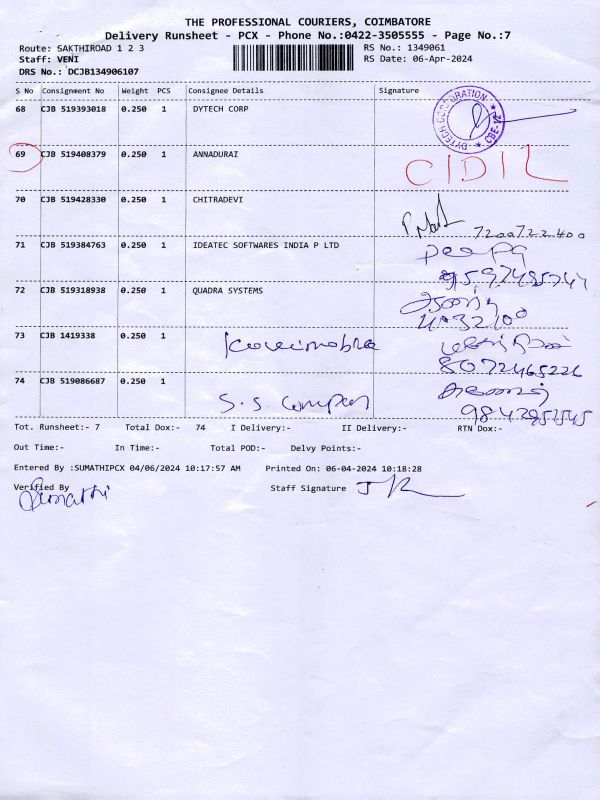 THE PROFESSIONAL COURIERS, COIMBATORE
Delivery Runsheet - PCX - Phone No.:0422-3505555 - Page No.:7
Route: SAKTHIROAD 1 2 3 RS No.: 1349061
Staff: VENI RS Date: 06-Apr-2024
DRS No.: DCJB134906107
S No Consignment No Weight PCS Consignee Details Signature
68 CJB 519393018 0.250 1 DYTECH CORP
DYTECH CORPORATION * CBE-12 *
69 CJB 519408379 0.250 1 ANNADURAI
70 CJB 519428330 0.250 1 CHITRADEVI
7200722400
71 CJB 519384763 0.250 1 IDEATEC SOFTWARES INDIA P LTD Deepa
72 CJB 519318938 0.250 1 QUADRA SYSTEMS
73 CJB 1419338 0.250 1
8072465226
74 CJB 519086687 0.250 1
S.S. Company
Tot. Runsheet:- 7 Total Dox:- 74 I Delivery:- II Delivery:- RTN Dox:-
Out Time:- In Time:- Total POD:- Delvy Points:-
Entered By :SUMATHIPCX 04/06/2024 10:17:57 AM Printed On: 06-04-2024 10:18:28
Verified By Staff Signature
Sumathi